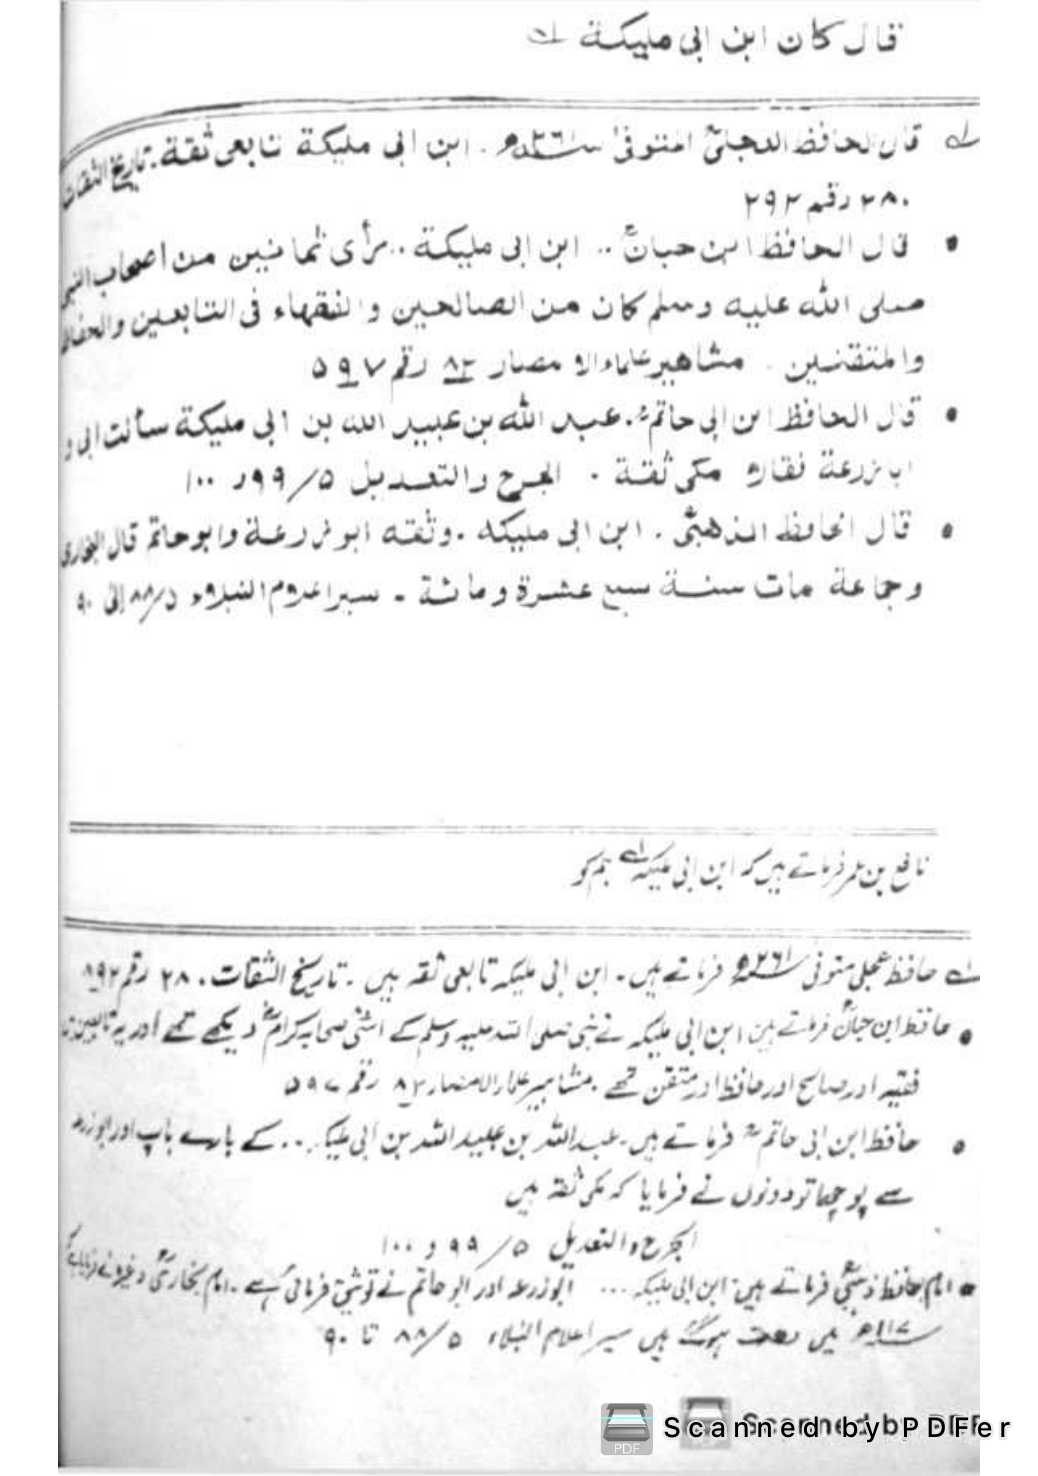 قال كان ابن ابى مليكة لہ
لہ قال الحافظ العجلىؒ المتوفى سنہ ۲۶۱ھ . ابن ابى مليكة تابعى ثقة . تاريخ الثقات
۲۸۰ رقم ۲۹۲
• قال الحافظ ابن حبانؒ .. ابن ابى مليكة .. رأى ثمانين من اصحاب النبى
صلى الله عليه وسلم كان من الصالحين والفقهاء فى التابعين والحفاظ
والمتقنين . مشاهير علماء الامصار ۸۲ رقم ۵۹۷
• قال الحافظ ابن ابى حاتمؒ . عبد الله بن عبيد الله بن ابى مليكة سألت ابى و
ابا زرعة فقالا مكى ثقة . الجرح والتعديل ۵/۹۹ و ۱۰۰
• قال الحافظ الذهبىؒ . ابن ابى مليكه . وثقه ابو زرعة وابو حاتم قال البخارى
وجماعة مات سنة سبع عشرة ومائة - سير اعلام النبلاء ۵/۸۸ الى ۹۰
نافع بن عمر فرماتے ہیں کہ ابن ابی ملیکہ لہ ہم کو
لہ حافظ عجلی متوفی سنہ ۲۶۱ھ فرماتے ہیں - ابن ابی ملیکہ تابعی ثقہ ہیں . تاریخ الثقات . ۲۸ رقم ۸۹۲
• حافظ ابن حبانؒ فرماتے ہیں ابن ابی ملیکہ نے نبی صلی اللہ علیہ وسلم کے اسّی صحابہ کرامؓ دیکھے تھے اور یہ تابعین
فقیہ اور صالح اور حافظ اور متقن تھے . مشاہیر علماء الامصار ۸۲ رقم ۵۹۷
• حافظ ابن ابی حاتمؒ فرماتے ہیں . عبد اللہ بن عبید اللہ بن ابی ملیکہ .. کے بارے باپ اور ابو زرعہ
سے پوچھا تو دونوں نے فرمایا کہ مکی ثقہ ہیں
الجرح والتعدیل ۵/۹۹ و ۱۰۰
• امام حافظ ذہبیؒ فرماتے ہیں . ابن ابی ملیکہ ... ابو زرعہ اور ابو حاتم نے توثیق فرمائی ہے . امام بخاریؒ وغیرہ نے فرمایا کہ
سنہ ۱۱۷ھ میں فوت ہوگئے ہیں سیر اعلام النبلاء ۵/۸۸ تا ۹۰
Scanned by PDFer